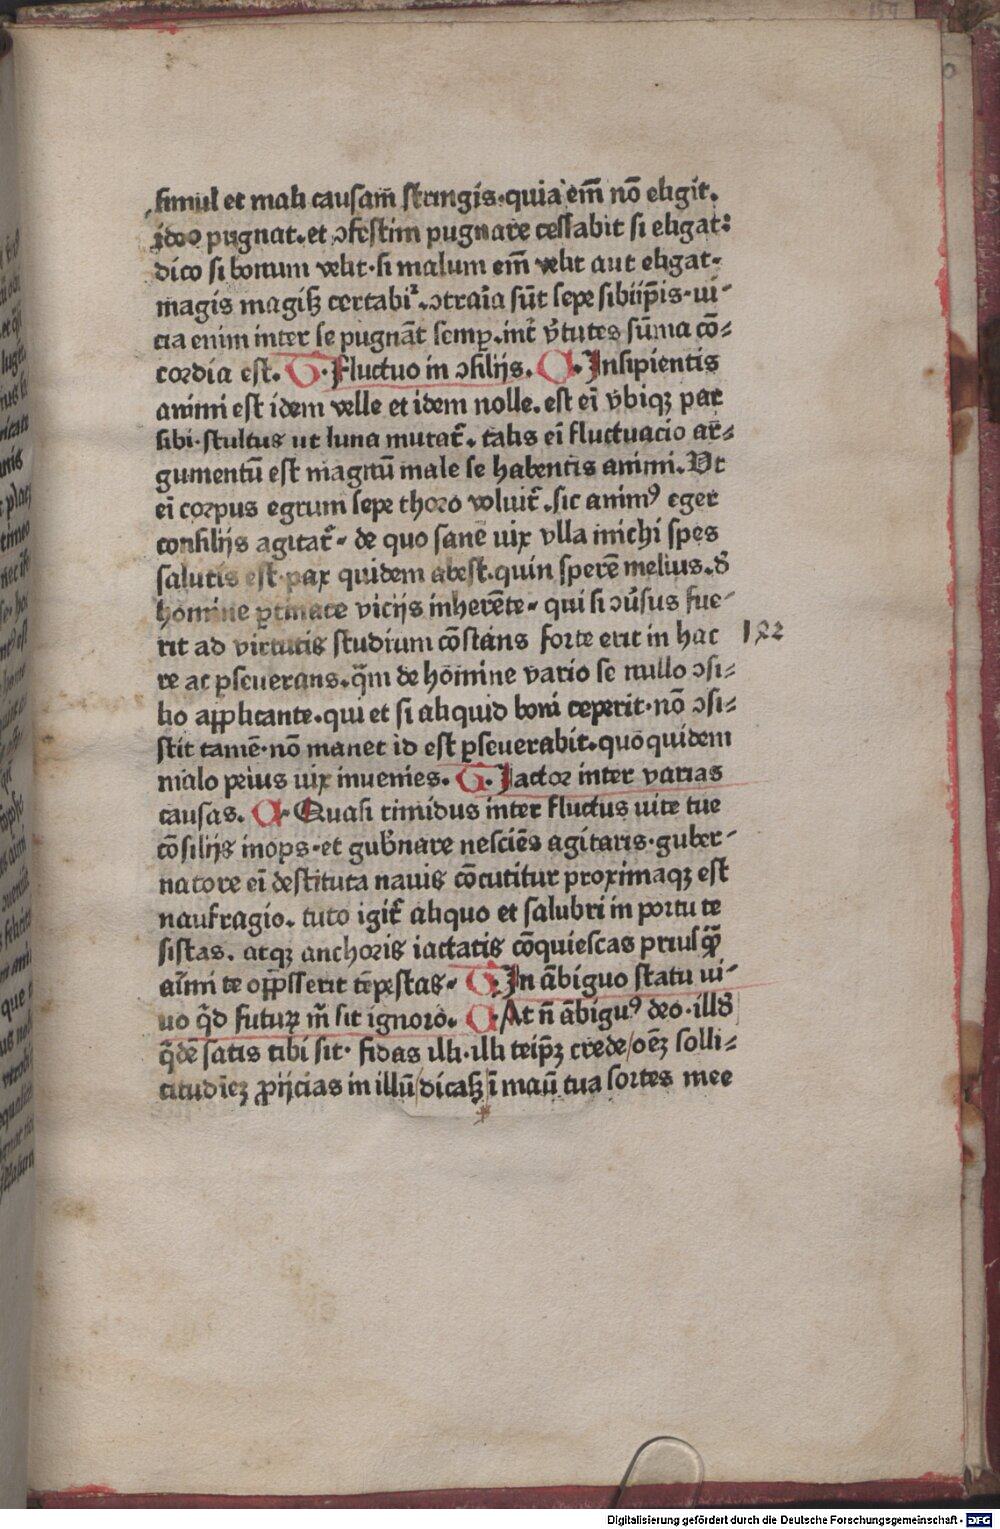 154
simul et mali causam̄ stringis·quia em̄ nō eligit.
ideo pugnat.et ↄfestim pugnare cessabit si eligat:
dico si bonum velit·si malum em̄ velit aut eligat-
magis magisꝫ certabit᷑.ↄtrar̄ia sūt sepe sibiip̄is·ui-
cia enim inter se pugnāt semꝑ.int̄ v̄tutes sūma cō-
cordia est. G·Fluctuo in ↄsilijs. A·Insipientis
animi est idem velle et idem nolle.est ei̅ vbiqꝫ par
sibi·stultus ut luna mutat᷑. talis ei̅ fluctuacio ar-
gumentū est magnū male se habentis animi.Vt
ei̅ corpus egrum sepe thoro voluit᷑.sic animꝰ eger
consilijs agitat᷑- de quo sane uix vlla michi spes
salutis est·pax quidem abest.quin sperē melius.d̄
homine ꝑtinate vicijs inherēte- qui si ↄūsus fue-
rit ad virtutis studium cōstans forte erit in hac
122
re ac ꝑseuerans.q̄m de homine vario se nullo ↄsi-
lio applicante.qui et si aliquid boni ceperit·nō ↄsi-
stit tamē·nō manet id est ꝑseuerabit.quo quidem
malo peius uix inuenies. G·Jactor inter varias
causas. A·Quasi timidus inter fluctus uite tue
cōsilijs inops·et gub̄nare nesciēs agitaris·guber-
natore ei̅ destituta nauis cōcutitur proximaqꝫ est
naufragio. tuto igit᷑ aliquo et salubri in portu te
sistas. atqꝫ anchoris iactatis cōquiescas priusꝙ̄
aīmi te opp̄sserit tēpestas- G·In ābiguo statu ui-
uo q̄d futuꝝ m̄ sit ignoro. A·At n̄ ābiguꝰ deo·illd̄
q̄dē satis tibi sit· fidas illi·illi teip̄ꝫ crede/oēꝫ solli-
citudīeꝫ ꝓijcias in illū/dicasꝫ/ī maū tua sortes mee
Digitalisierung gefördert durch die Deutsche Forschungsgemeinschaft - DFG